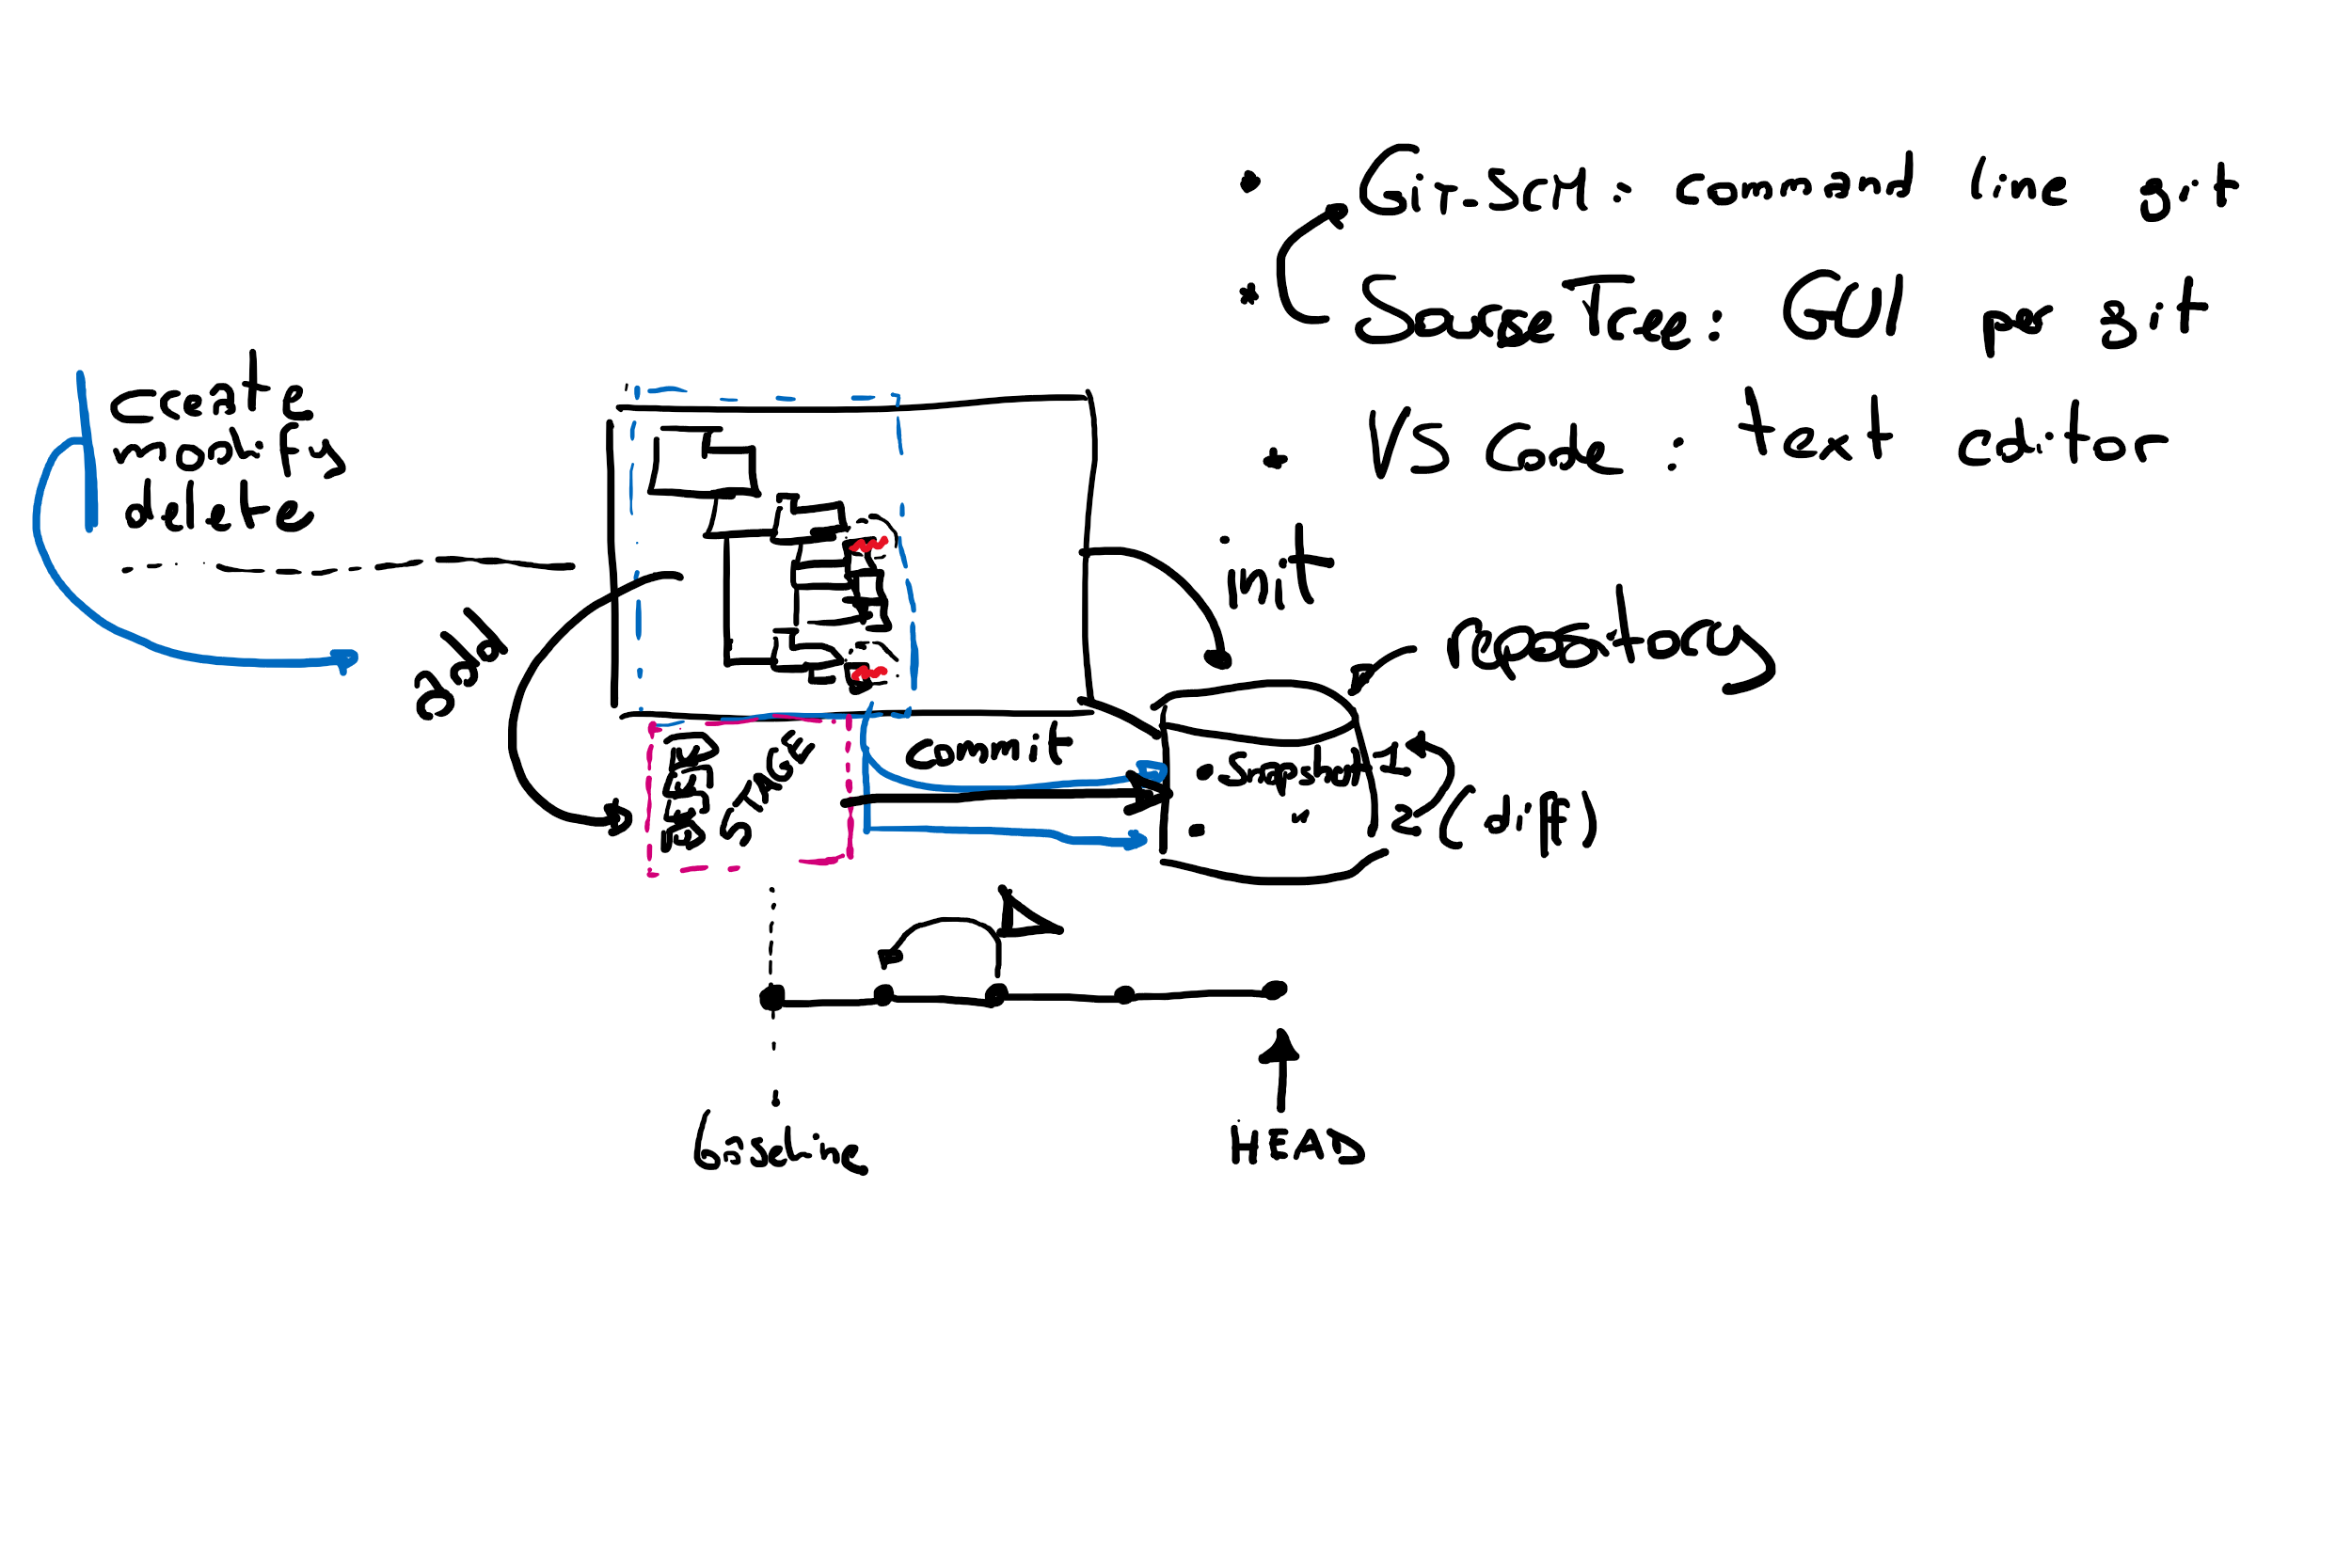 • Git-SCM: command line git
* SourceTree: GUI per git
+ VS Code: text editor
create
modify
delete
init
repository
add
commit
• snapshot 1
• " 2 (diff)
baseline
HEAD